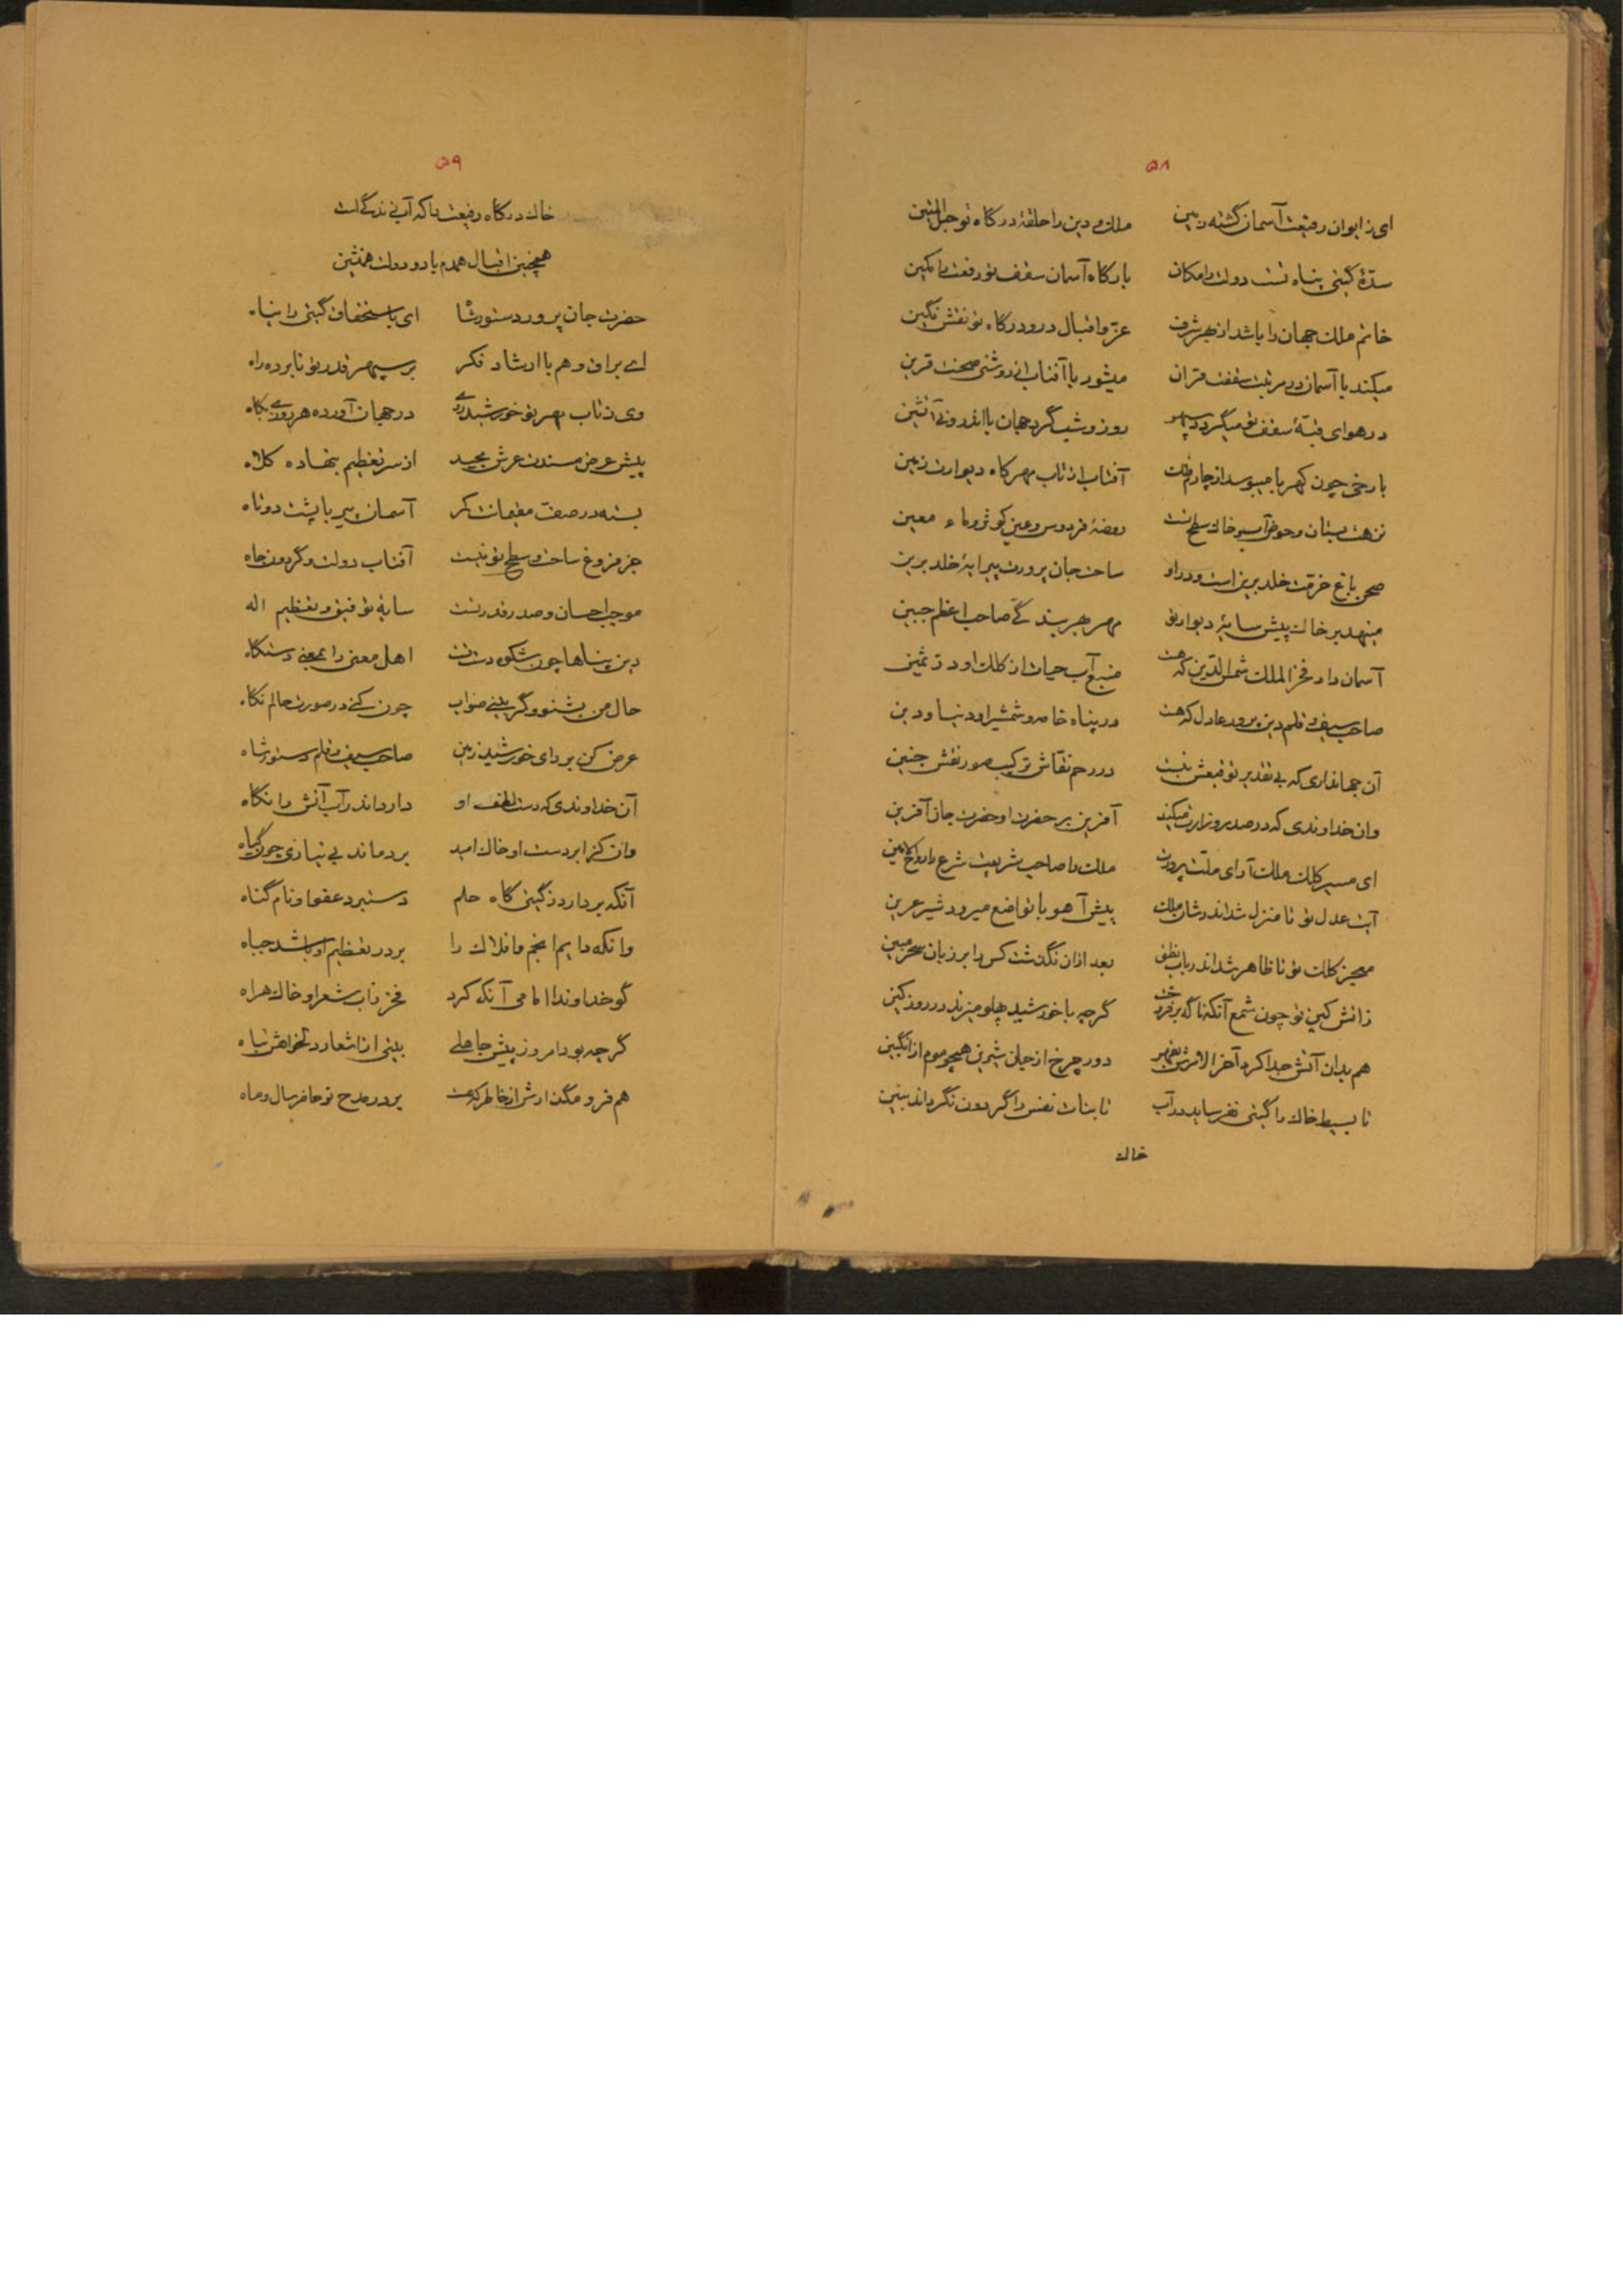 ۵۸
ای ز ایوان رفیعت آسمان گشته زمین ملک و دین را حلقهٔ درگاه تو حبل المتین
سدّهٔ گیتی پناه تست دولت را مکان بارگاه آسمان سقف تو رفعت را مکین
خاتم ملک جهان را باشد از بهر شرف عزّ و اقبال در و درگاه تو نقش نگین
میکند با آسمان در مرتبت سقفت قران میشود با آفتاب از روشنی صحنت قرین
در هوای قبهٔ سقف تو میگردد سپهر روز و شب گرد جهان با اندرونی آتشین
با رخی چون کهربا میبوسد از چارم فلک آفتاب از تاب مهر کاه دیوارت زمین
نزهت بستان و حوض آب و خاک سطح تست روضهٔ فردوس و عین کوثر و ماء معین
صحن باغ خرمت خلد برین است و در او ساحت جان پرورت پیرایهٔ خلد برین
مینهد بر خاک پیش سایهٔ دیوار تو مهر بهر بندگی صاحب اعظم جبین
آسمان داد فخر الملک شمس الدین که هست منبع آب حیات از کلک او درّ ثمین
صاحب سیف و قلم دین پرور عادل که هست در پناه خامه و شمشیر او دنیا و دین
آن جهانداری که بی تقدیر توقیعش نبست در رحم نقاش ترکیب صور نقش جنین
وان خداوندی که در صدر وزارت میکند آفرین بر حضرت او حضرت جان آفرین
ای مسیر کلک ملک آرای ملت پرورت ملک را صاحب شریعت شرع را روح الامین
آیت عدل تو تا منزل شد اندر شان ملک پیش آهو با تواضع میرود شیر عرین
معجز کلک تو تا ظاهر شد اندر باب نطق بعد ازان نگذشت کس را بر زبان سحر مبین
زاتش کین تو چون شمع آنکه ناگه بر فروخت گرچه با خورشید پهلو میزند در روز کین
هم بدان آتش جدا کرد آخر الامرش بقهر دور چرخ از جان شیرین همچو موم از انگبین
تا بسیط خاک را گیتی نفرساید در آب تا بنات نعش را گردون نگرداند بنین
خاک
۵۹
خاک درگاه رفیعت را که آب زندگی است
همچنین اقبال همدم باد و دولت همنشین
حضرت جان پرور دستور شا ای باستحقاق گیتی را پناه
اے براق وهم با ارشاد فکر بر سپهر قدر تو نابرده راه
وی ز تاب مهر تو خورشید رای در جهان آورده هر روزی بگاه
پیش عرض مسندت عرش مجید از سر تعظیم بنهاده کلاه
بسته در صف مقیمانت کمر آسمان پیر با پشت دوتاه
جز فروغ ساحت و سطح تو نیست آفتاب دولت و گردون جاه
موجب احسان و صدر قدر تست سایهٔ توفیق و تعظیم اله
دین پناها چون شکوه دست تست اهل معنی را بمعنی دستگاه
حال من بشنو و گر بینی صواب چون کنی در صورت حالم نگاه
عرض کن بر رای خورشید زمین صاحب سیف و قلم دستور شاه
آن خداوندی که دست لطف او دارد اندر آب آتش را نگاه
وان کز ابر دست او خاک امید بردماند بی نیازی چون گیاه
آنکه بردارد ز گیتی گاه حلم دستبرد عفو او نام گناه
وانکه دایم انجم و افلاک را بر در تعظیم او باشد جباه
گو خداوندا امامی آنکه کرد فخر ز آب شعر او خاک هراه
گرچه بود امروز پیش جاهلی بیتی از اشعار دلخواهش تباه
هم فرو مگذارش از خاطر که هست بر در مدح تو حاضر سال و ماه